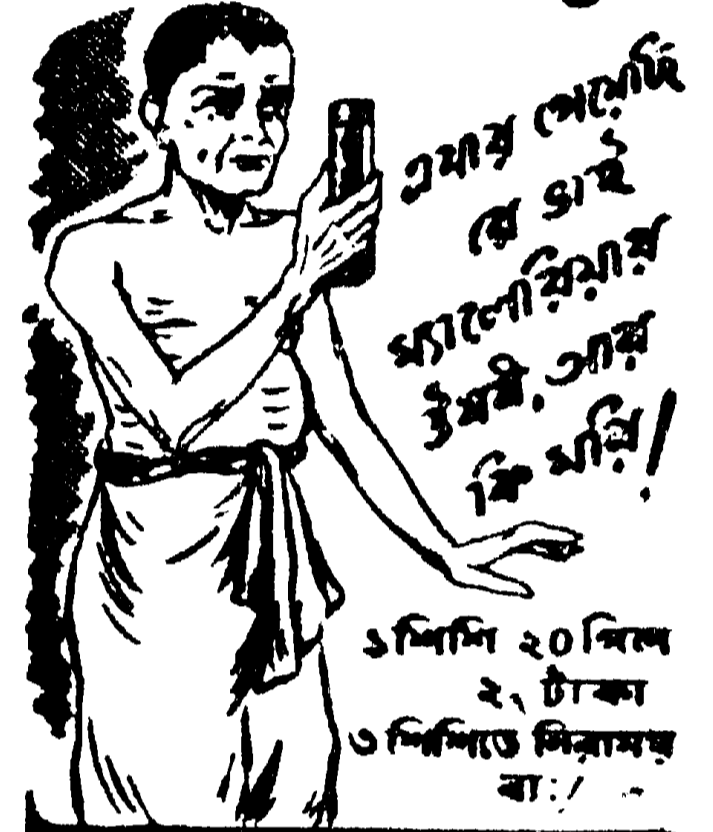 এবার পেয়েছি
রে ভাই
ম্যালেরিয়ার
ঔষধী, আর
কি মরি!
১ শিশি ২০ পিল
২৲ টাকা
৩ শিশিতে নিরাময়